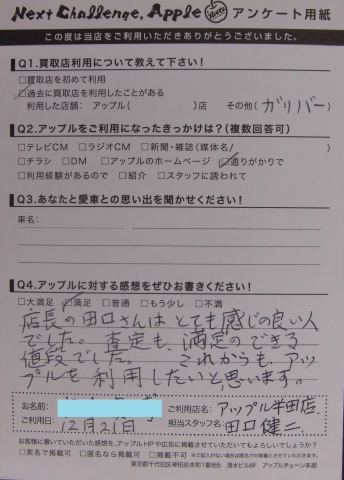 Next Challenge, Apple アンケート用紙
この度は当店をご利用いただきありがとうございました。
Q1.買取店利用について教えて下さい！
□買取店を初めて利用
☑過去に買取店を利用したことがある
利用した店舗： アップル（　）店　その他（ガリバー）
Q2.アップルをご利用になったきっかけは？（複数回答可）
□テレビCM □ラジオCM □新聞・雑誌（媒体名/　）
□チラシ □DM □アップルのホームページ ☑通りがかりで
□利用経験があるので □紹介 □スタッフに誘われて
Q3.あなたと愛車との思い出を聞かせください！
車名：
Q4.アップルに対する感想をぜひお書きください！
□大満足 ☑満足 □普通 □もう少し □不満
店長の田口さんはとても感じの良い人
でした。査定も、満足のできる
値段でした。 これからも、アッ
プルを利用したいと思います。
お名前： ご利用店名： アップル半田店
ご利用日： 12月21日 担当スタッフ名： 田口健二
お客様に書いていただいた感想を、アップルHPや広告に掲載させていただいてもよろしいでしょうか？
□実名で掲載可 □匿名なら掲載可 □掲載不可 ※ご記入がない場合は匿名での掲載とさせていただきます。
東京都千代田区神田岩本町1番地5 清水ビル6F アップルチェーン本部